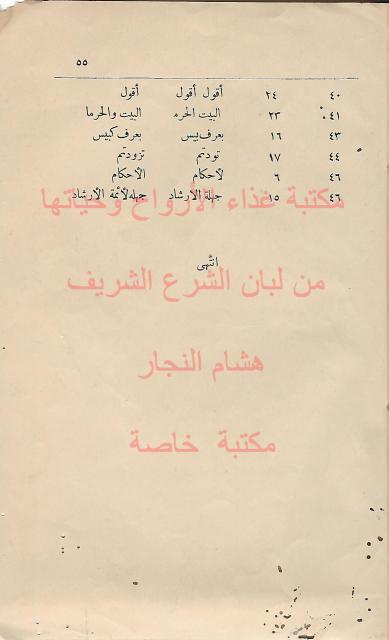 ٥٥
٤٠ ٢٤ أقول أقول أقول
٤١ ٢٣ البيت الحرم البيت والحرما
٤٣ ١٦ بعرف يس بعرف كيس
٤٤ ١٧ تودتم تزودتم
٤٦ ٦ لاحكام الاحكام
٤٦ ١٥ جهله الارشاد جهله لأئمة الارشاد
مكتبة غذاء الأرواح وحياتها
انتهى
من لبان الشرع الشريف
هشام النجار
مكتبة خاصة